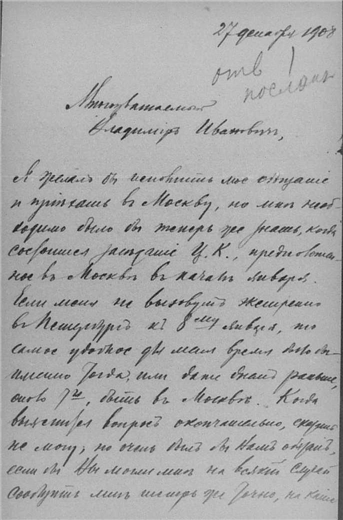 27 декабря 1908
отв!
послан
Многоуважаемый
Владимiръ Ивановичъ,
Я желалъ бы исполнить мое обѣщанiе
и прiѣхать въ Москву, но мнѣ необ-
ходимо было бы теперь же знать, когда
состоится засѣданiе Ц. К., предположен-
ное въ Москвѣ въ началѣ января.
Если меня не вызовутъ экстренно
въ Петербургъ къ 8му января, то
самое удобное для меня время было бы
именно тогда, или даже днемъ раньше,
около 7го, быть въ Москвѣ. Когда
выяснится вопросъ окончательно, сказать
не могу, но очень былъ бы Вамъ обязанъ,
если бы Вы могли мнѣ на всякiй случай
сообщить мнѣ теперь же точно, на какiя